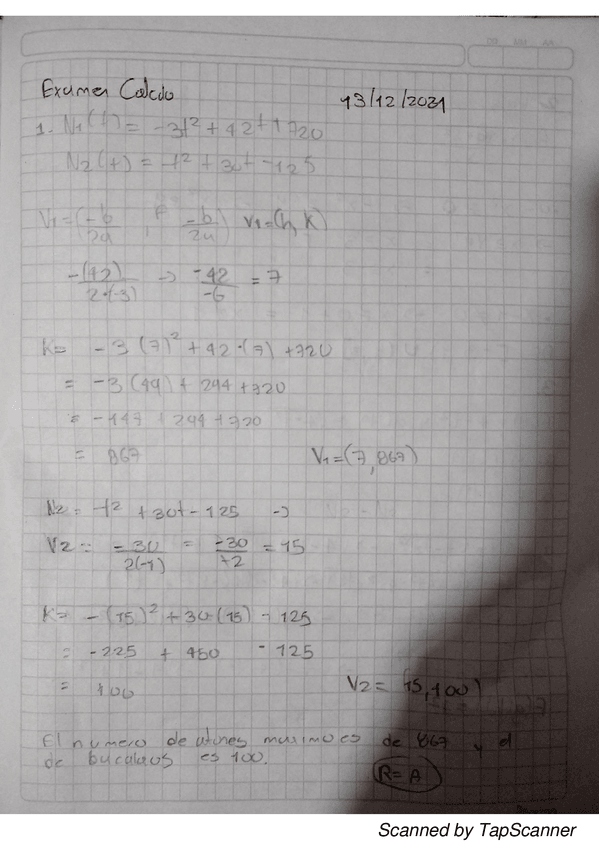 Examen Calculo 13/12/2021
1. N1(t) = -3t² + 42t + 720
N2(t) = -t² + 30t - 125
V1 = (-b/2a, F -b/2a) V1 = (h, K)
-(42)/2·(-3) -> -42/-6 = 7
K= -3(7)² + 42·(7) + 720
= -3(49) + 294 + 720
= -147 + 294 + 720
= 867 V1=(7,867)
N2 = -t² + 30t - 125 ->
V2 = -30/2(-1) = -30/-2 = 15
K= -(15)² + 30(15) - 125
= -225 + 450 - 125
= 100 V2 = (15,100)
El numero de atunes maximo es de 867 y el
de bacalaos es 100.
R= A
Scanned by TapScanner